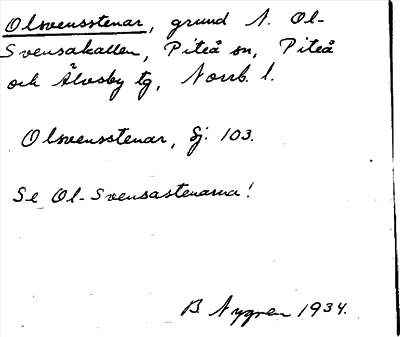 Olsvensstenar, grund N. Ol-
Svensakallen, Piteå sn, Piteå
och Älvsby tg, Norrb. l.
Olsvensstenar, Sj. 103.
Se Ol-Svensastenarna!
B. Nygren 1934.